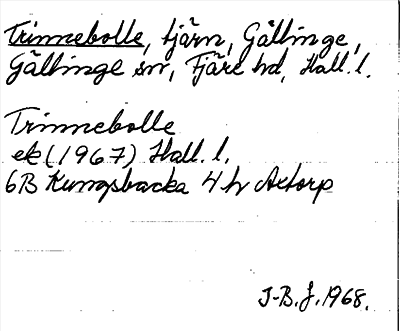 Trinnebolle, tjärn, Gällinge,
Gällinge sn, Fjäre hd, Hall. l.
Trinnebolle
ek (1967) Hall. l.
6B Kungsbacka 4h Axtorp
J-B. J. 1968.